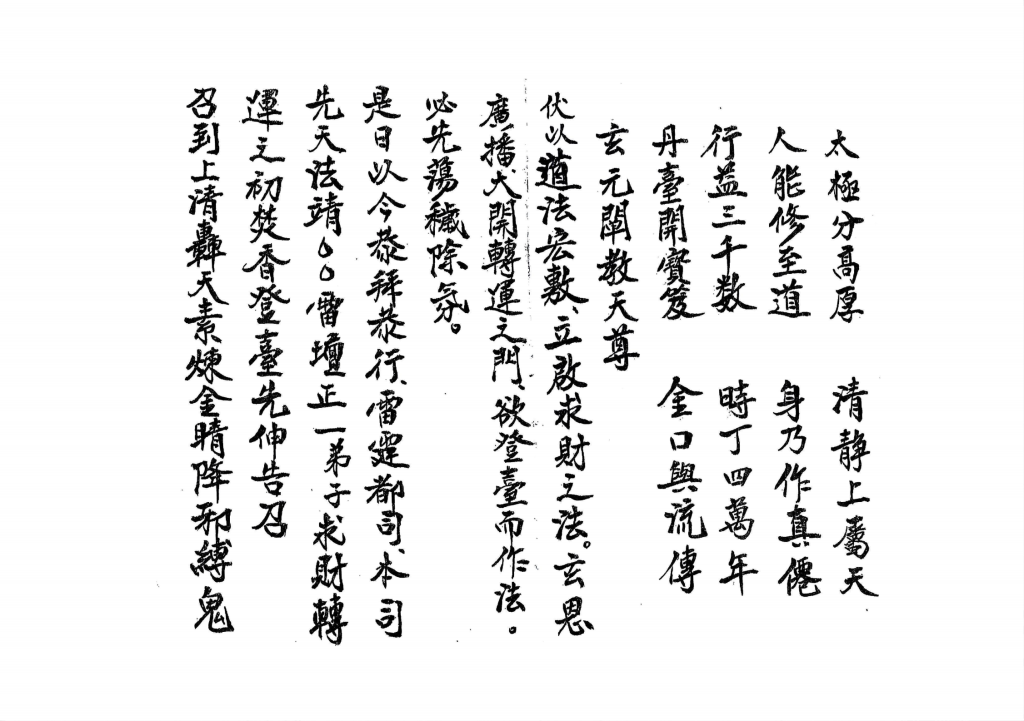 太極分高厚　清靜上屬天
人能修至道　身乃作真僊
行益三千数　時丁四萬年
丹臺開寶笈　金口與流傳
玄元闡教天尊
伏以道法宏敷、立啟求財之法。玄恩
廣播、大開轉運之門、欲登臺而作法。
必先蕩穢除氛。
是日以今恭拜恭行、雷霆都司、本司
先天法靖○○雷壇正一弟子求財轉
運之初焚香登臺先伸告召
召到上清轟天素煉金睛降邪縛鬼